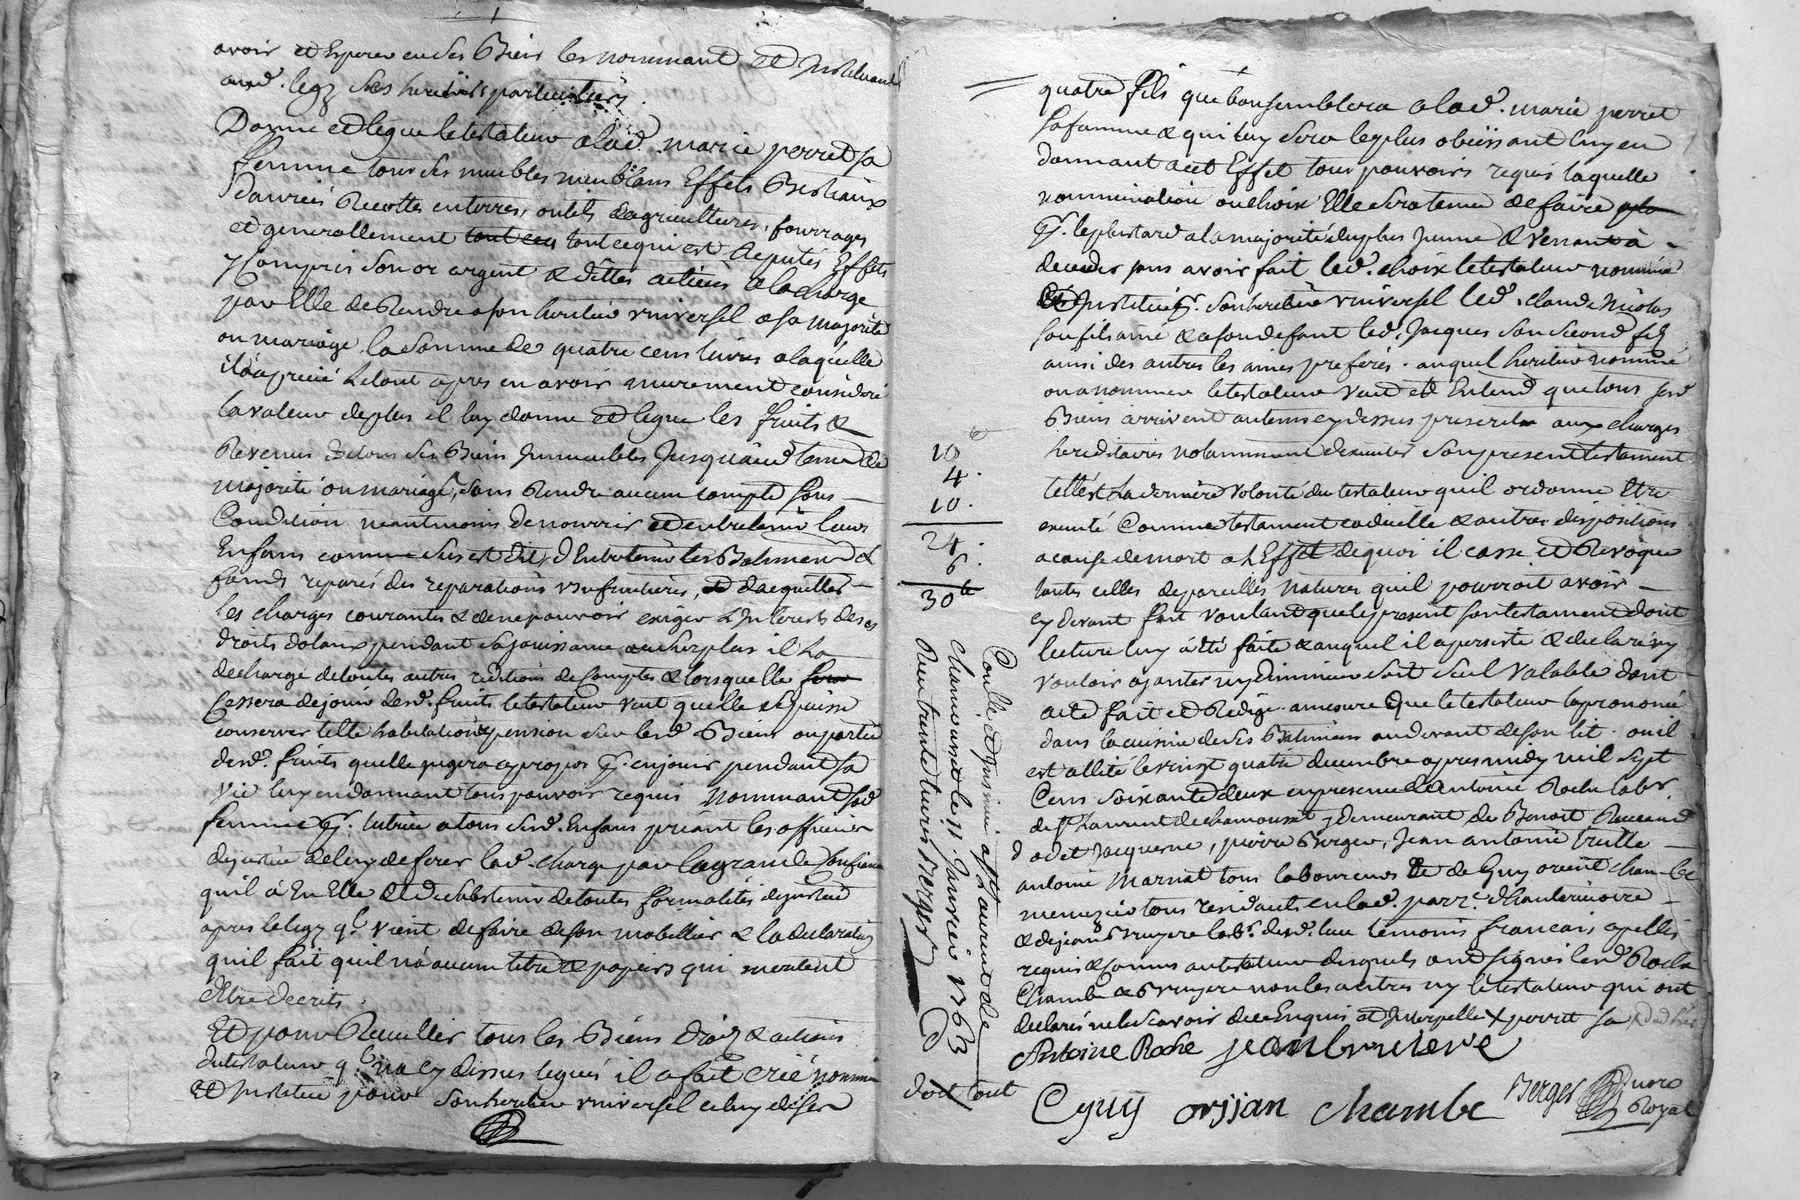 avoir et Esperer en ses Biens les nommant et Instituant
aud. legz ses heritiers particuliers.
Donne et legue le testateur a lad. marie perret sa
femme tous ses meubles meublans Effets Bestiaux
Danrées Recottes en terres, outils dagricultures, fourrages
et generallement tout ce qui est deputés Effets
y Compris son or argent & dittes actives a la charge
par Elle de Rendre a son heritier vniversel a sa majorité
ou mariage la somme de quatre cens livres a laquelle
il a aprecié Letout apres en avoir murement considéré
la valeur deplus il luy donne et legue les fruits &
Revenus de tous ses Biens Immeubles Jusqu'aud. tems de
majorité ou mariage, sans Rendre aucun compte sous
Condition neantmoins de nourrir et entretenir leurs
Enfans comme sus est dit, d'Entretenir les Batimens &
fonds reparés des reparations vsufruitieres, et dacquitter
les charges courantes & de ne pouvoir exiger L'Interests de ses
droits dotaux pendant sa jouissance au surplus il la
decharge de toutes autres reditions de Comptes & lorsquelle
Cessera de jouir desd. fruits le testateur veut quelle se puisse
conserver telle habitation & pension sur lesd. Biens ou partie
desd. fruits quelle jugera a propos pr. en jouir pendant sa
vie luy en donnant tous pouvoir requis nommant sad.
femme pr. tutrice a tous sesd. Enfans priant les officiers
de justice de luy deferer lad. charge par la grande Confiance
quil a En Elle & de s'abstenir de toutes formalités de justice
apres le legs q. vient de faire de son mobillier & la declaration
quil fait quil n'a aucun titre & papiers qui meritent
d'Etre decrits.
Et pour Recuillir tous les Biens droits & actions
du testateur q. n'a cy dessus legués il a fait créé nommé
et Institué pour son heritier vniversel celuy de ses
quatre fils que bon semblera a lad. marie perret
sa femme & qui luy sera le plus obeissant luy en
donnant a cet Effet tous pouvoirs requis laquelle
nommination ou choix Elle sera tenue de faire
pr. le plus tard a la majorité du plus Jeune & venant a
deceder sans avoir fait led. choix le testateur nomme
Et Institue pr. son heritier vniversel led. claude Nicolas
son fils ainé & a son defaut led. Jacques son second fils
ainsi des autres les ainés preferés. auquel heritier nommé
ou a nommer le testateur veut et Entend que tous sesd.
Biens arrivent au tems cy dessus prescrit aux charges
hereditaires notamment d'executer son present testament
telle est La derniere volonté du testateur quil ordonne Etre
executé Comme testament codicille & autres dispositions
a cause de mort a L'Effet de quoi il casse et Revoque
toutes celles de pareilles natures quil pourroit avoir
cy devant fait voulant que le present son testament dont
lecture luy a été faite & auquel il a persisté & declaré ny
vouloir ajouter ny diminuer soit seul valable dont
acte fait et Redigé a mesure que le testateur l'a prononcé
dans la cuisine de ses Batimens au devant de son lit ou il
est allité le vingt quatre decembre apres midy mil sept
Cens soixante deux en presence de antoine Roche labr.
de St. Laurent de chamousset y demeurant de Benoit
pierre Berger, Jean antoine trulle
antoine Marnat tous laboureurs de Guy orient chambe
menuzier tous residants en lad. parr.e d'hauterivoire
& de jean Bruyere labr. dud. lieu temoins francais apellés
requis & connus au testateur desquels ont signés lesd. Roche
Chambe & Bruyere non les autres ny le testateur qui ont
declarés ne le scavoir de ce Enquis et Interpellé
Antoine Roche jean bruiere
C guy orijan chambe Berger Nore
Royal
10 tt
4.
10.
24.
6.
30 tt
Controllé et Insinué a St Laurent de
Chamousset le 11. Janvier 1763
Reçu trente livres Berger
doit tout